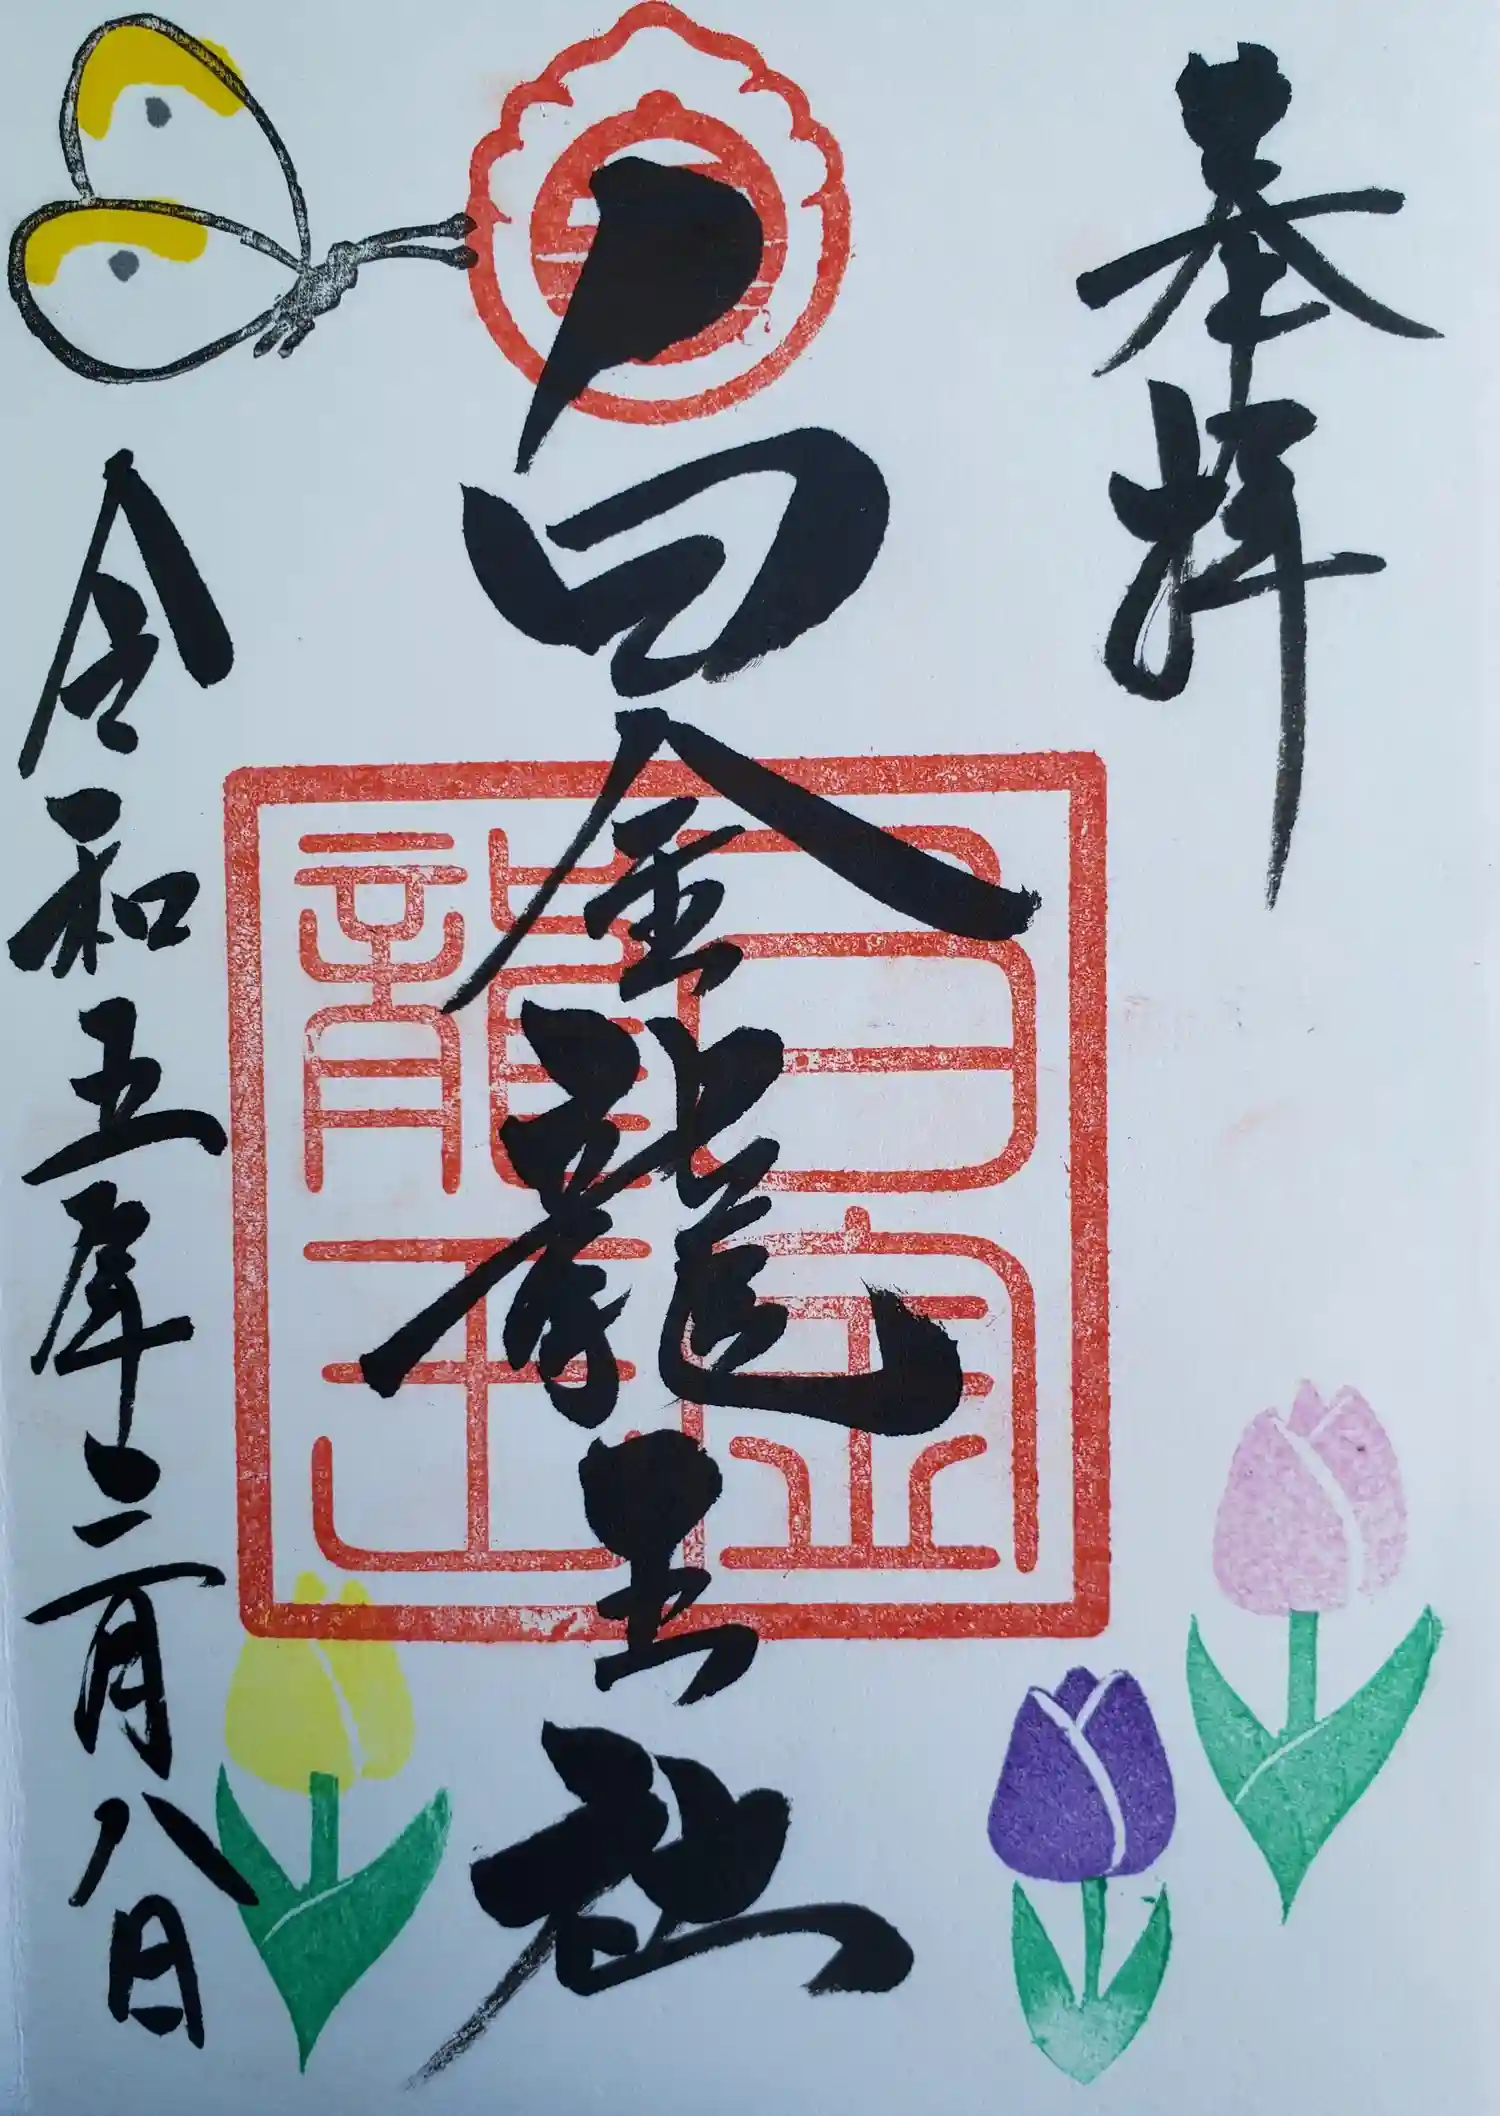 奉拝
白金龍王社
白金
龍王
令和五年二月八日